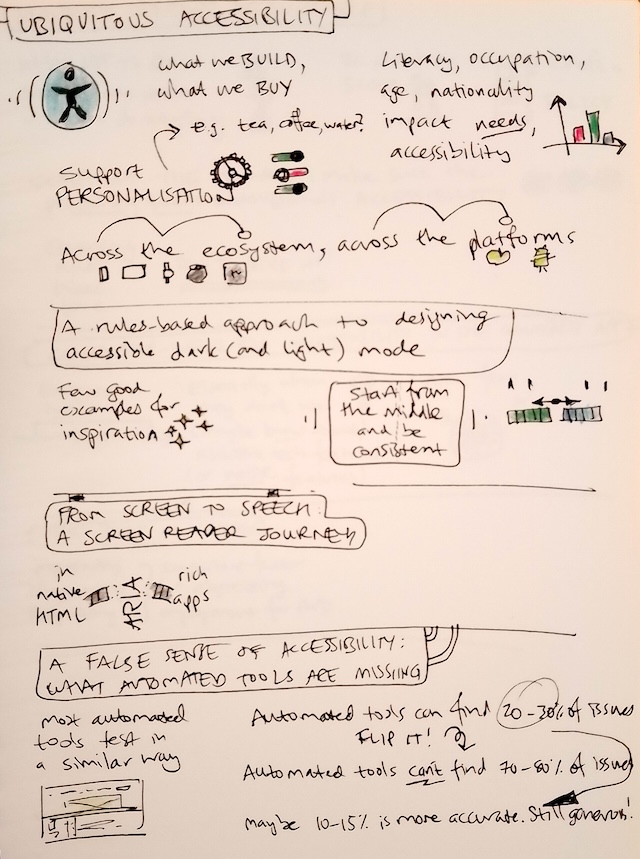 UBIQUITOUS ACCESSIBILITY
what we BUILD,
what we BUY
e.g. tea, coffee, water?
Literacy, occupation,
age, nationality
impact needs,
accessibility
Support
PERSONALISATION
Across the ecosystem, across the platforms
A rules-based approach to designing
accessible dark (and light) mode
Few good
examples for
inspiration
Start from
the middle
and be
consistent
FROM SCREEN TO SPEECH:
A SCREEN READER JOURNEY
in
native
HTML
ARIA
rich
apps
A FALSE SENSE OF ACCESSIBILITY:
WHAT AUTOMATED TOOLS ARE MISSIING
most automated
tools test in
a similar way
Automated tools can find 20-30% of issues
FLIP IT!
Automated tools can't find 70-80% of issues
maybe 10-15% is more accurate. Still generous!